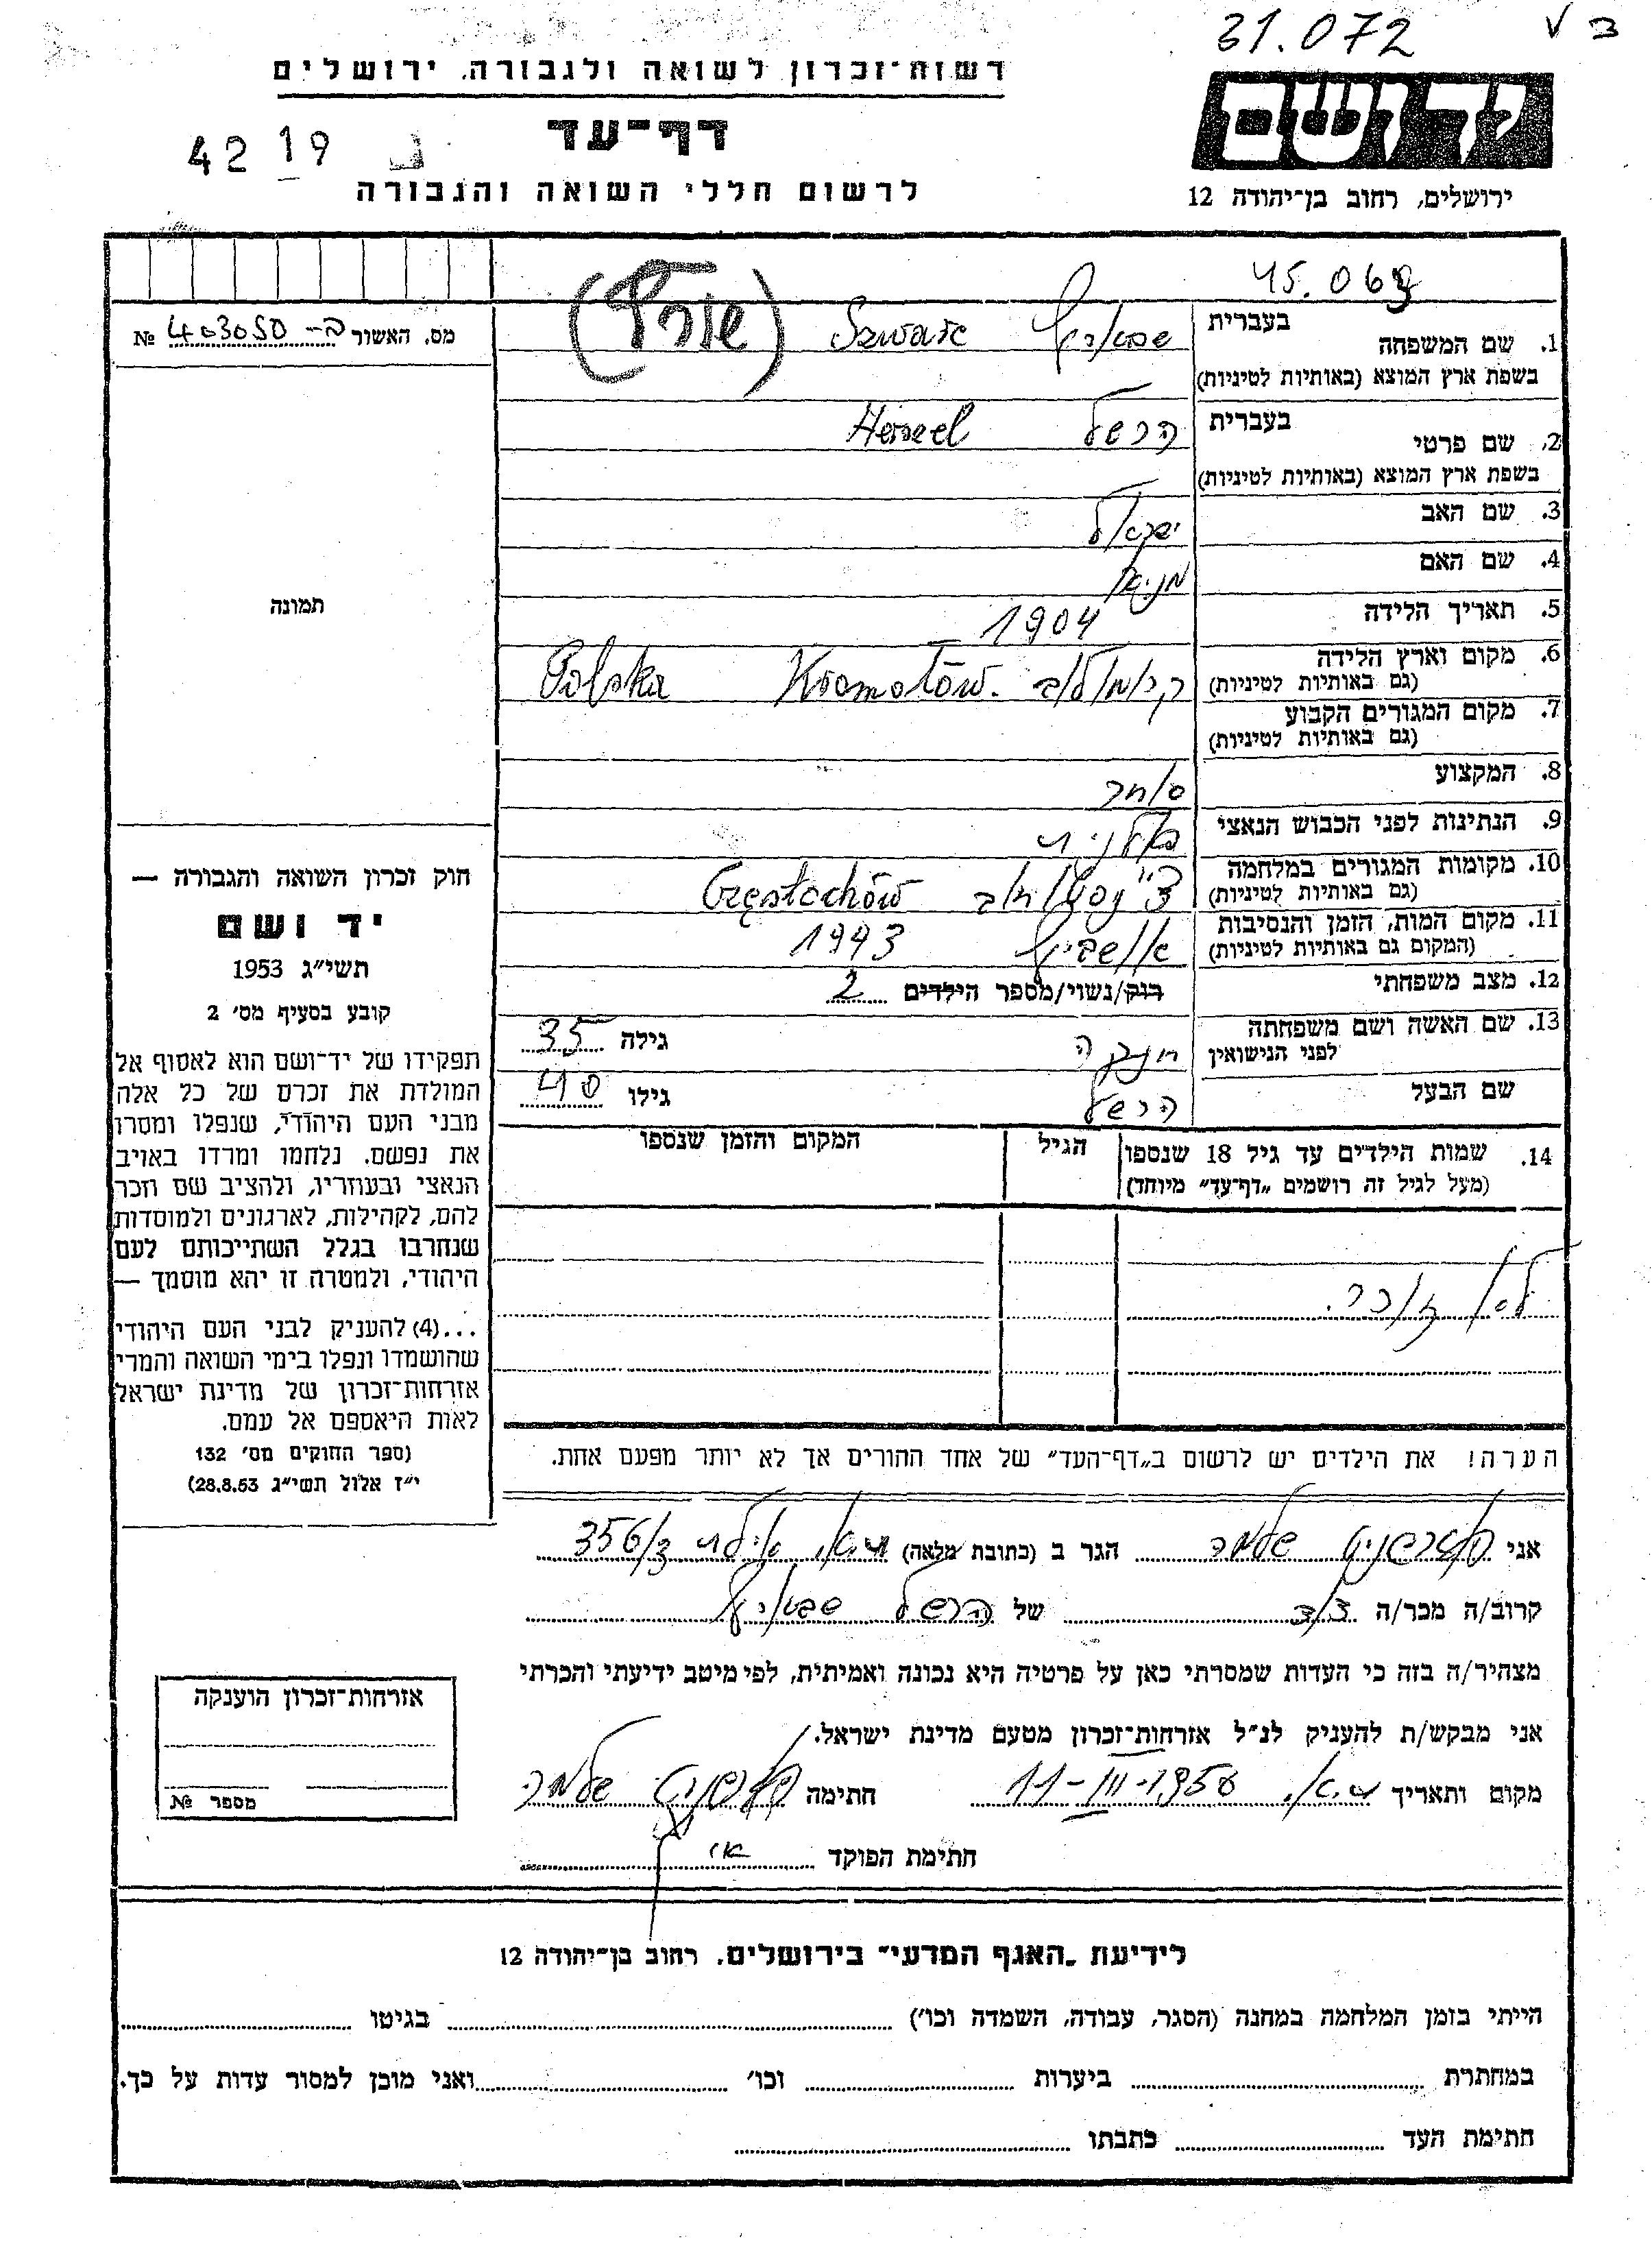 31.072
רשות־זכרון לשואה ולגבורה. ירושלים
ידושם
דף־עד
42 19
לרשום חללי השואה והגבורה
ירושלים, רחוב בן־יהודה 12
45.069
מס. האשור ב-- 403050 №
1. שם המשפחה בעברית Szwarc
בשפת ארץ המוצא (באותיות לטיניות)
2. שם פרטי בעברית הרשל Herszel
בשפת ארץ המוצא (באותיות לטיניות)
3. שם האב ישראל
4. שם האם
5. תאריך הלידה 1904
6. מקום וארץ הלידה Kromołów. Polska
(גם באותיות לטיניות)
7. מקום המגורים הקבוע
(גם באותיות לטיניות)
8. המקצוע סוחר
9. הנתינות לפני הכבוש הנאצי פולנית
10. מקומות המגורים במלחמה צ'נסטוחוב Częstochów
(גם באותיות לטיניות)
11. מקום המות, הזמן והנסיבות אושביץ 1943
(המקום גם באותיות לטיניות)
12. מצב משפחתי רוק/נשוי/מספר הילדים 2
13. שם האשה ושם משפחתה לפני הנישואין גילה 35
שם הבעל הרשל גילו 40
14. שמות הילדים עד גיל 18 שנספו הגיל המקום והזמן שנספו
(מעל לגיל זה רושמים „דף־עד״ מיוחד)
לא זוכר.
תמונה
חוק זכרון השואה והגבורה —
יד ושם
תשי״ג 1953
קובע בסעיף מס׳ 2
תפקידו של יד־ושם הוא לאסוף אל
המולדת את זכרם של כל אלה
מבני העם היהודי, שנפלו ומסרו
את נפשם. נלחמו ומרדו באויב
הנאצי ובעוזריו, ולהציב שם וזכר
להם, לקהילות, לארגונים ולמוסדות
שנחרבו בגלל השתייכותם לעם
היהודי, ולמטרה זו יהא מוסמך —
...(4) להעניק לבני העם היהודי
שהושמדו ונפלו בימי השואה והמרי
אזרחות־זכרון של מדינת ישראל
לאות היאספם אל עמם.
(ספר החוקים מס׳ 132
י״ז אלול תשי״ג 28.8.53)
הערה! את הילדים יש לרשום ב„דף־העד״ של אחד ההורים אך לא יותר מפעם אחת.
אני שלמה הגר ב (כתובת מלאה) 356/3
קרוב/ה מכר/ה של הרשל
מצהיר/ה בזה כי העדות שמסרתי כאן על פרטיה היא נכונה ואמיתית, לפי מיטב ידיעתי והכרתי
אני מבקש/ת להעניק לנ״ל אזרחות־זכרון מטעם מדינת ישראל.
מקום ותאריך 11-III-1956 חתימה שלמה
חתימת הפוקד
אזרחות־זכרון הוענקה
מספר №
לידיעת „האגף המדעי״ בירושלים. רחוב בן־יהודה 12
הייתי בזמן המלחמה במחנה (הסגר, עבודה, השמדה וכו׳) בגיטו
במחתרת ביערות וכו׳ ואני מוכן למסור עדות על כך.
חתימת העד כתבתו